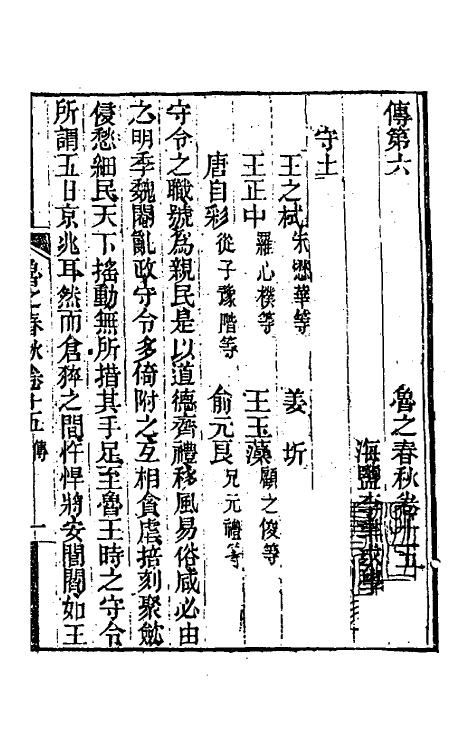 傳第六　魯之春秋卷十五
海鹽李聿
守土
王之栻朱懋華等　姜圻
王正中羅心樸等　王玉藻顧之俊等
唐自彩從子豫階等　俞元良兄元禮等
守令之職號為親民是以道德齊禮移風易俗咸必由
之明季魏閹亂政守令多倚附之互相貪虐掊刻聚斂
侵愁細民天下搖動無所措其手足至魯王時之守令
所謂五日京兆耳然而倉猝之間忤悍將安閭閻如王
魯之春秋卷十五　傳　一